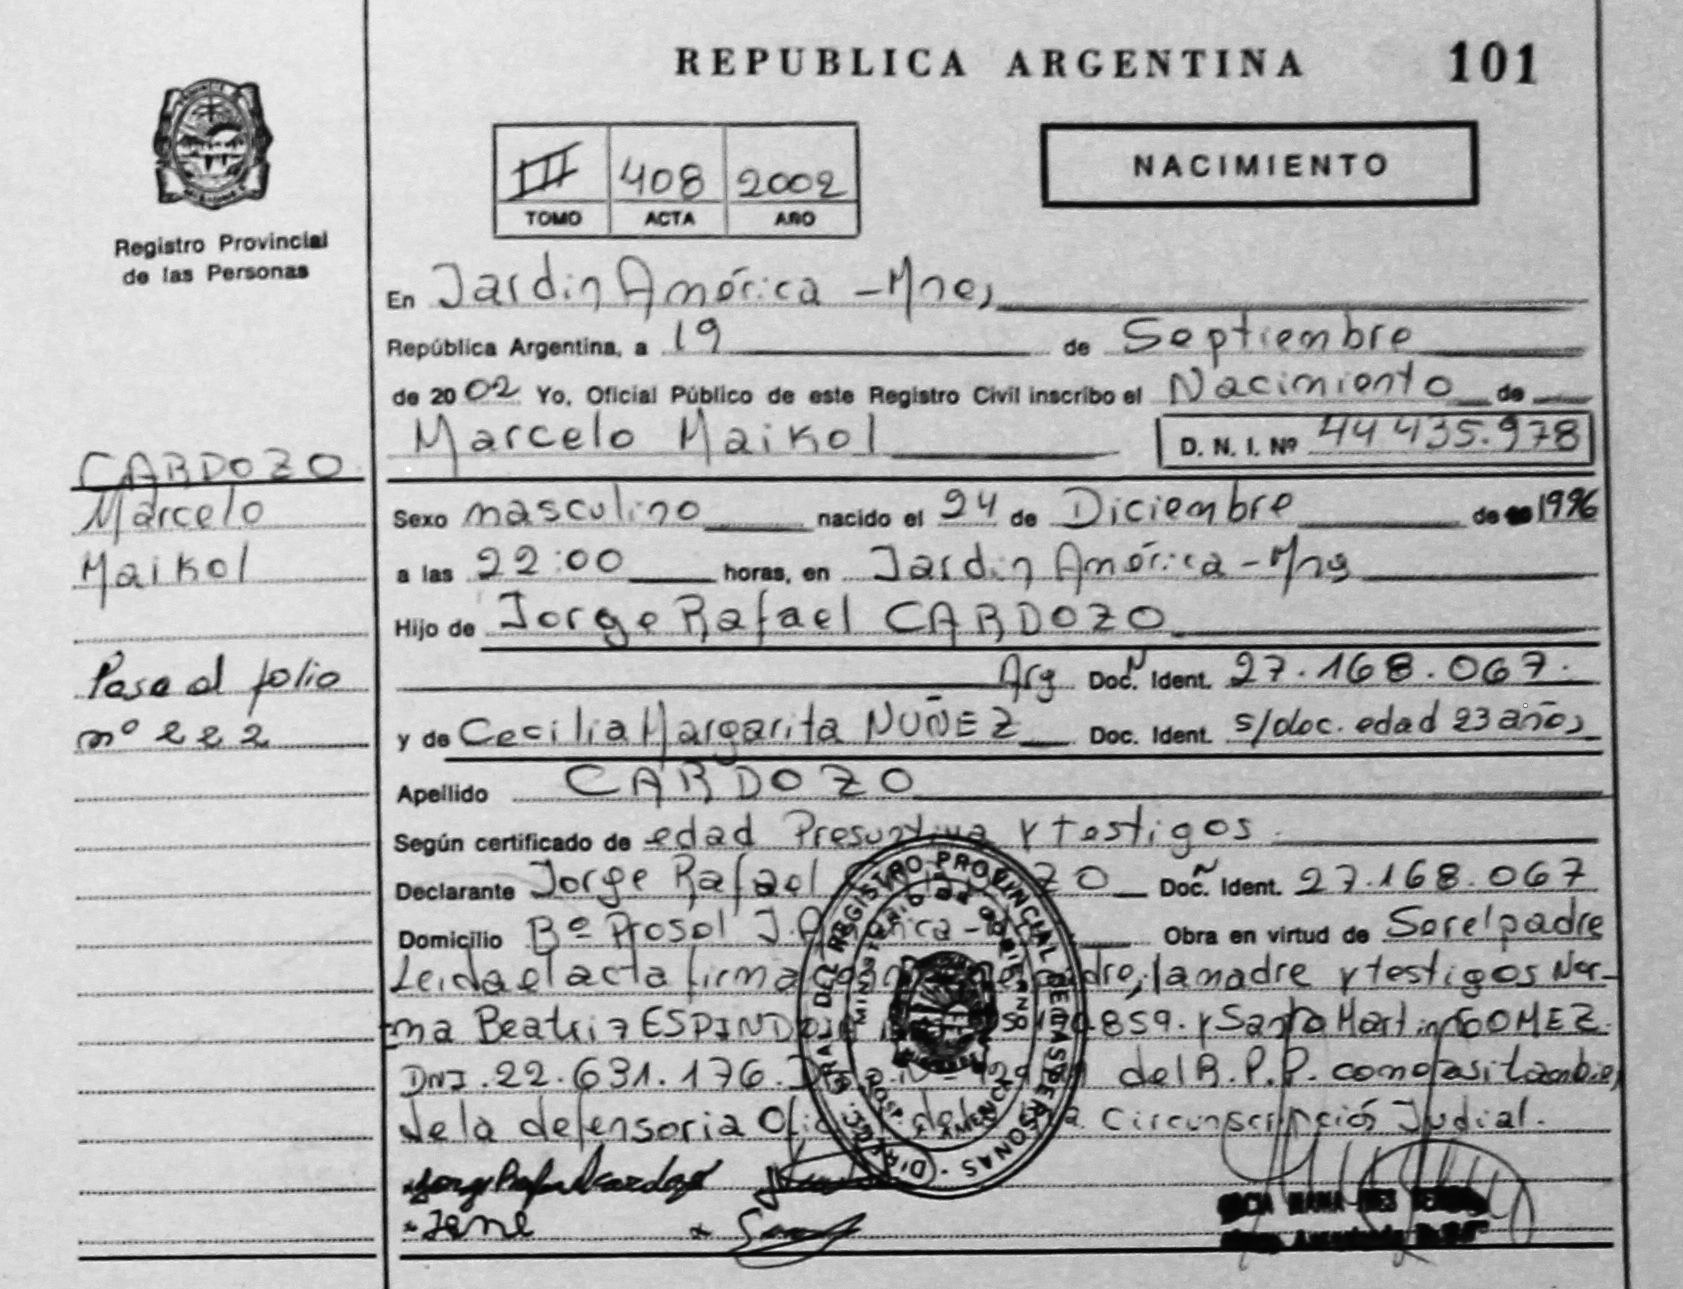 REPUBLICA ARGENTINA 101
Registro Provincial
de las Personas
III 408 2002
TOMO ACTA AÑO
NACIMIENTO
En Jardin América - Mnes
República Argentina, a 19 de Septiembre
de 2002 Yo, Oficial Público de este Registro Civil inscribo el Nacimiento de
Marcelo Maikol D. N. I. Nº 44 435.978
CARDOZO
Marcelo
Maikol
Pasa al folio
nº 222
Sexo masculino nacido el 24 de Diciembre de 1996
a las 22:00 horas, en Jardin América - Mns
Hijo de Jorge Rafael CARDOZO
Arg Doc. N Ident. 27.168.067.
y de Cecilia Margarita NUÑEZ Doc. Ident. s/doc. edad 23 años
Apellido CARDOZO
Según certificado de edad Presuntiva y testigos.
Declarante Jorge Rafael ZO Doc. N Ident. 27.168.067
Domicilio Bº Prosol J. A Obra en virtud de Ser el padre
Leida el acta firma la madre y testigos Nor-
ma Beatriz 859. y Martin GOMEZ.
DNI. 22.631.176. del R.P.P. como asi tambien
de la defensoria Circunscripción Judicial.
DIREC. GRAL. DEL REGISTRO PROVINCIAL DE LAS PERSONAS
MINISTERIO DE GOBIERNO
Jorge Rafael Cardozo